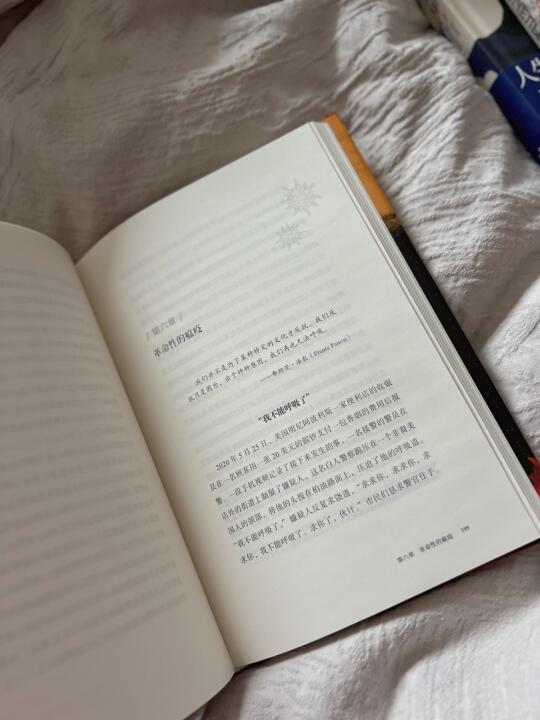 人生
/ 第六章 /
革命性的瘟疫
我们并不是为了某种特定的文化才反抗。我们反
抗只是因为，出于种种原因，我们再也无法呼吸。
——弗朗茨·法农（Frantz Fanon）
“我不能呼吸了”
2020 年 5 月 25 日，美国明尼阿波利斯一家便利店的收银
员在一名顾客用一张 20 美元的假钞支付一包香烟的费用后报
警。一段手机视频记录了接下来发生的事。一名接警的警员在
店外的街道上制服了嫌疑人。这名白人警察跪压在一个非裔美
国人的颈部，将他的头按在柏油路面上，压迫了他的呼吸道。
“我不能呼吸了。”嫌疑人反复求饶道。“求求你，求求你，求
求你，我不能呼吸了。求你了，伙计。”市民们恳求警官住手。
第六章 革命性的瘟疫 199